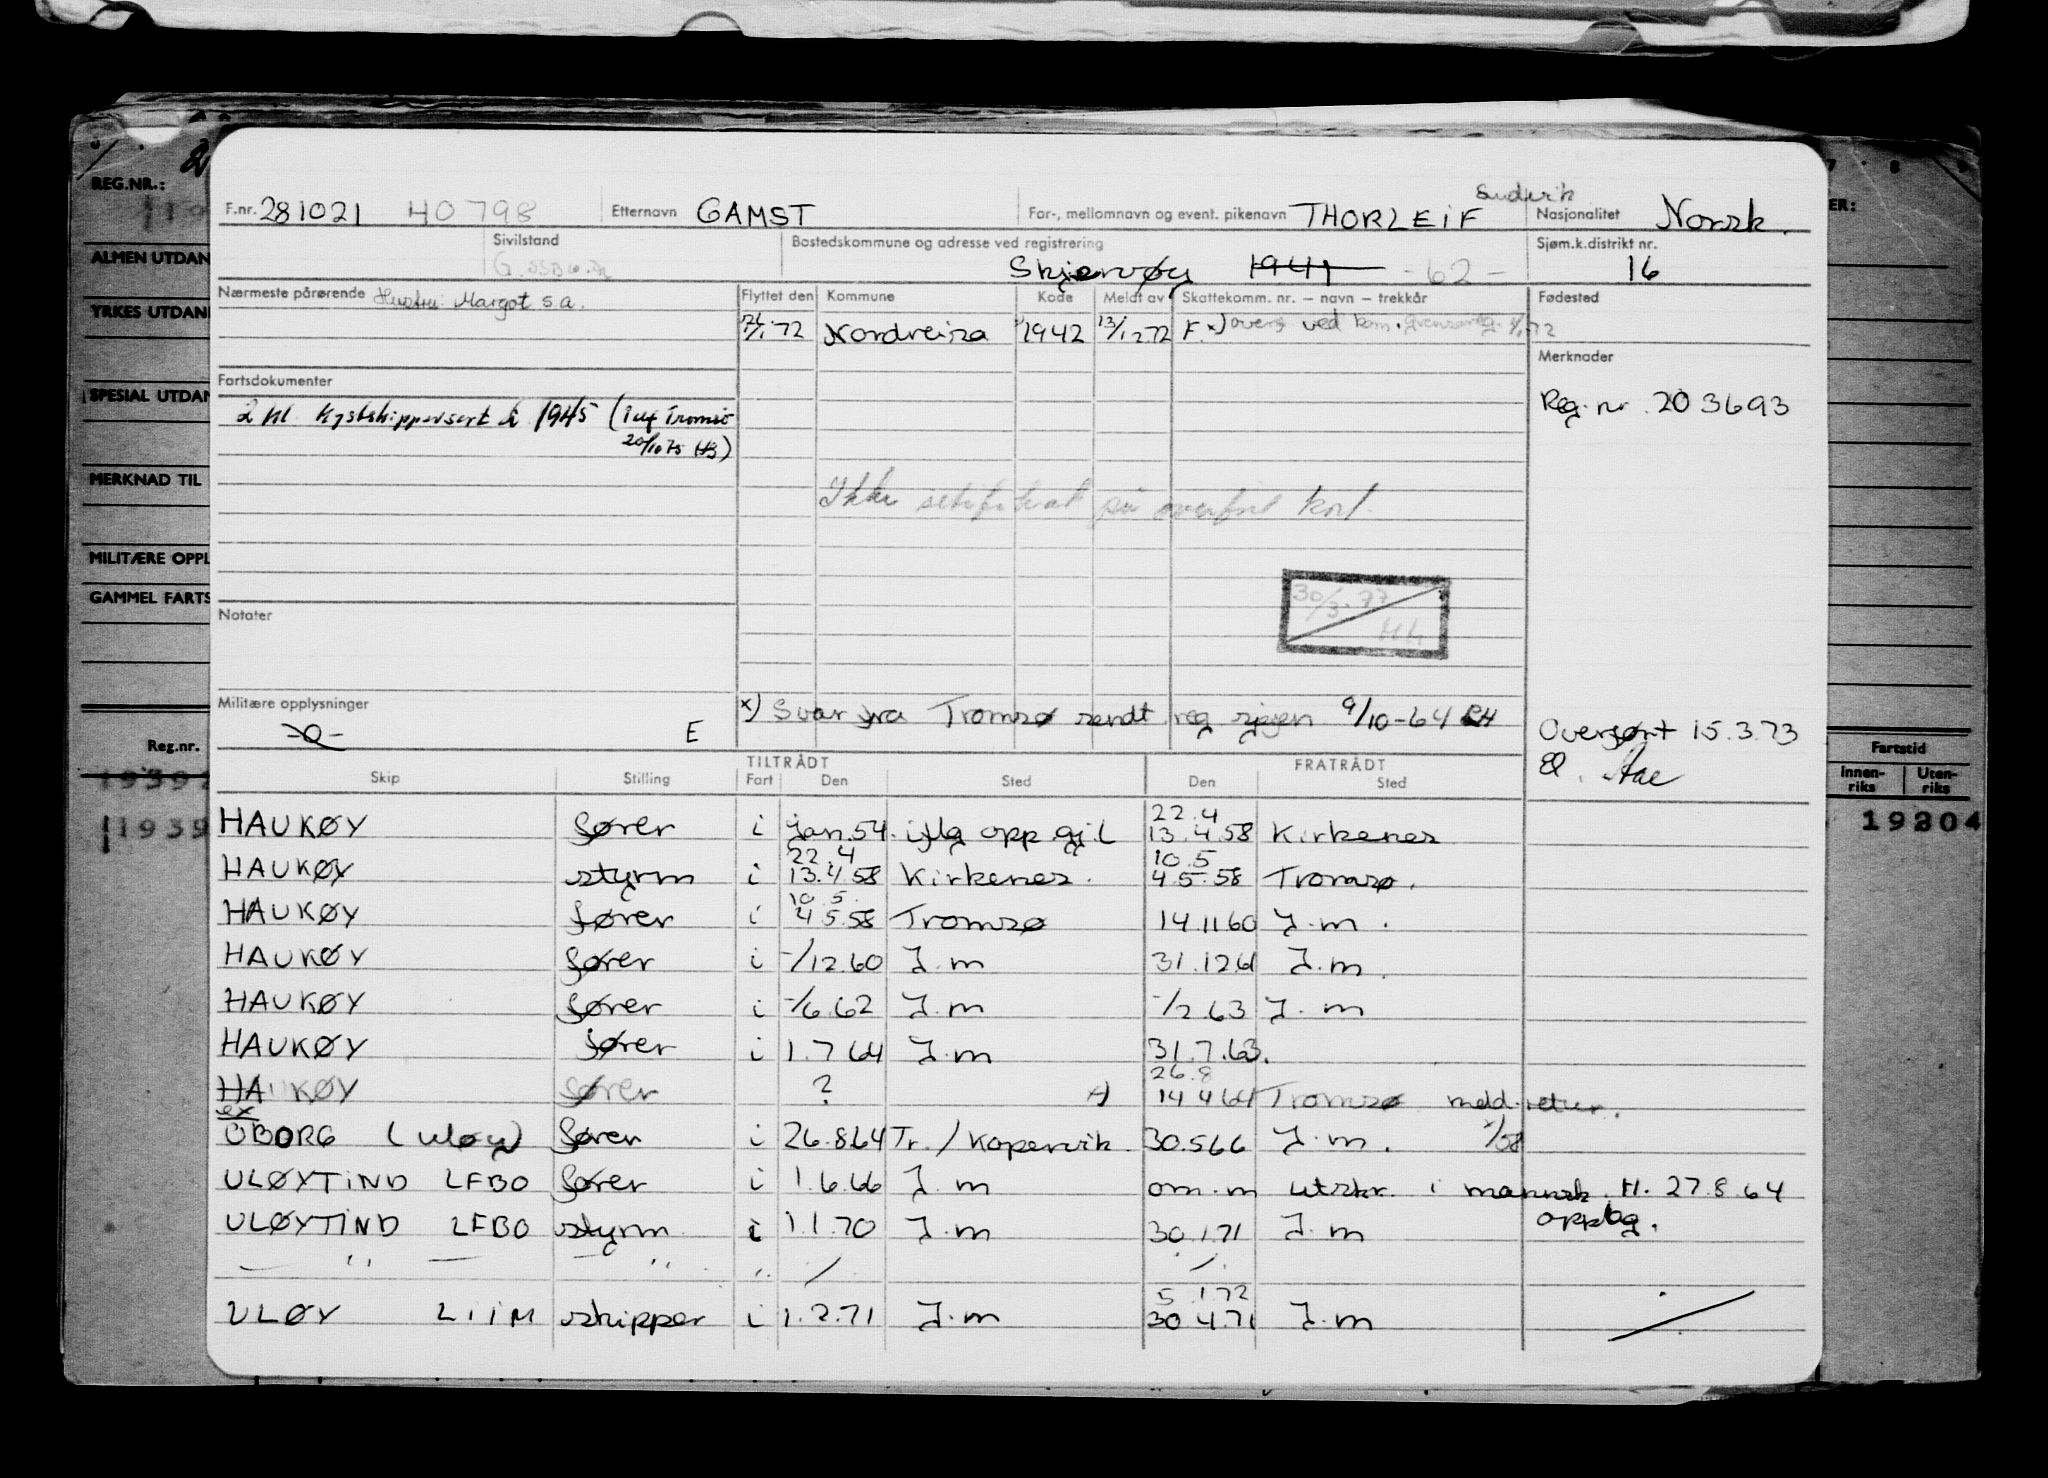 REG.NR.:
F.nr. 281021 40798 Etternavn GAMST For-, mellomnavn og event. pikenavn THORLEIF Nasjonalitet Norsk.
Sivilstand Bostedskommune og adresse ved registrering Sjøm.k.distrikt nr.
ALMEN UTDAN
G. Skjervøy 1941 -62- 16
Nærmeste pårørende Hustru: Margot s.a. Flyttet den Kommune Kode Meldt av Skattekomm. nr. – navn – trekkår Fødested
YRKES UTDAN
1/1 72 Nordreisa 1942 13/12 72 F. x) overf ved kom. grensereg. 1/1 72
Merknader
Fartsdokumenter
SPESIAL UTDAN
2 kl. kystskippersert i 1945 (Tromsø Reg. nr. 203693
20/10 75
MERKNAD TIL
Ikke sertifikat på overført kort
MILITÆRE OPPL
GAMMEL FARTS
30/3.77
HL
Notater
Militære opplysninger x) Svar fra Tromsø sendt reg sjøen 9/10-64 RH
-0- E
Overført 15.3.73
El. Aae
Reg.nr. Fartstid
Innen-riks Uten-riks
TILTRÅDT FRATRÅDT
Skip Stilling Fart Den Sted Den Sted
22.4
HAUKØY fører i jan.54. iflg opp gj.l 13.4.58 Kirkenes
1939 19204
22.4 10.5
HAUKØY styrm i 13.4.58 Kirkenes. 4.5.58 Tromsø.
10.5.
HAUKØY fører i 4.5.58 Tromsø 14.11.60 J.m.
HAUKØY fører i -/12.60 J.m 31.12.61 J.m.
HAUKØY fører i -/6.62 J.m -/2.63 J.m
HAUKØY fører i 1.7.64 J.m 31.7.63.
26.8
HAUKØY fører ? x) 14.4.64 Tromsø meld.retur.
ex
OBORG (Uløy) fører i 26.8.64 Tr./Kopervik 30.5.66 J.m. /58
ULØYTIND LFBO fører i 1.6.66 J.m om.m utskr. i mannsk. H. 27.8.64
opplog.
ULØYTIND LFBO styrm i 1.1.70 J.m 30.1.71 J.m
— " — — " " / /.
5.1.72
ULØY LIIM skipper i 1.2.71 J.m 30.4.71 J.m